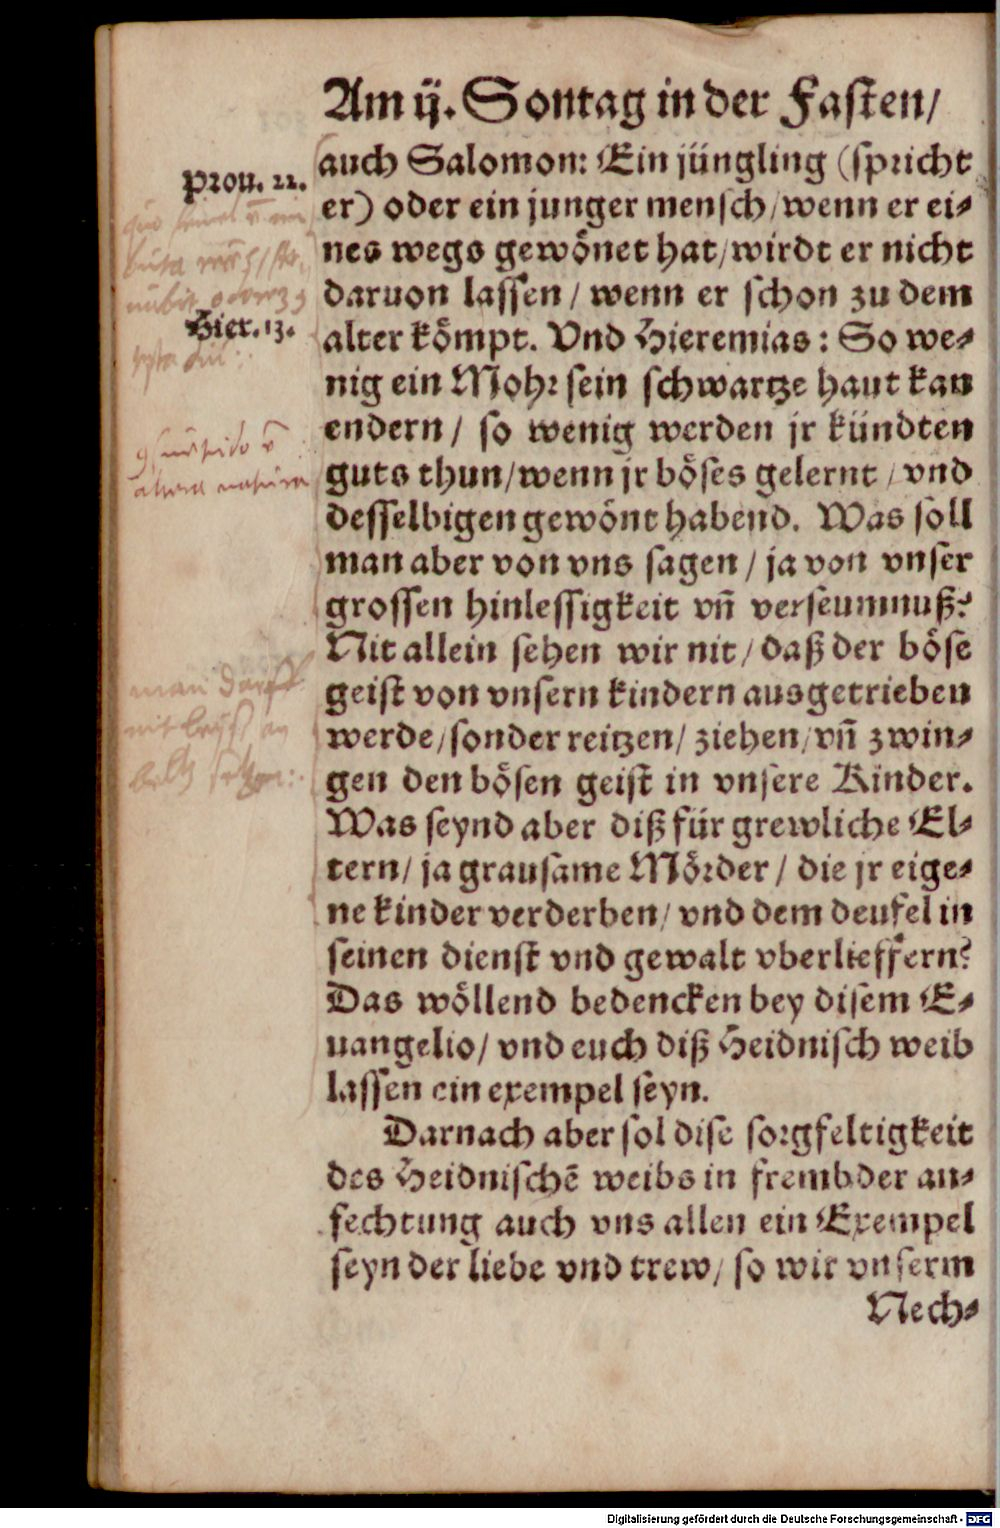 Am ij. Sontag in der Fasten/
auch Salomon: Ein jüngling (spricht
Prou. 22.
er) oder ein junger mensch/ wenn er ei⸗
nes wegs gewönet hat/ wirdt er nicht
daruon lassen/ wenn er schon zu dem
Hier. 13.
alter kömpt. Vnd Hieremias: So we⸗
nig ein Mohr sein schwartze haut kan
endern/ so wenig werden jr kündten
natura
guts thun/ wenn jr böses gelernt/ vnd
desselbigen gewönt habend. Was soll
man aber von vns sagen/ ja von vnser
grossen hinlessigkeit vñ verseumnuß?
Nit allein sehen wir nit/ daß der böse
man darff
geist von vnsern kindern ausgetrieben
nit
werde/ sonder reitzen/ ziehen/ vñ zwin⸗
gen den bösen geist in vnsere Kinder.
Was seynd aber diß für grewliche El⸗
tern/ ja grausame Mörder/ die jr eige⸗
ne kinder verderben/ vnd dem deufel in
seinen dienst vnd gewalt vberlieffern?
Das wöllend bedencken bey disem E⸗
uangelio/ vnd euch diß Heidnisch weib
lassen ein exempel seyn.
Darnach aber sol dise sorgfeltigkeit
des Heidnischē weibs in frembder an⸗
fechtung auch vns allen ein Exempel
seyn der liebe vnd trew/ so wir vnserm
Nech⸗
Digitalisierung gefördert durch die Deutsche Forschungsgemeinschaft - DFG